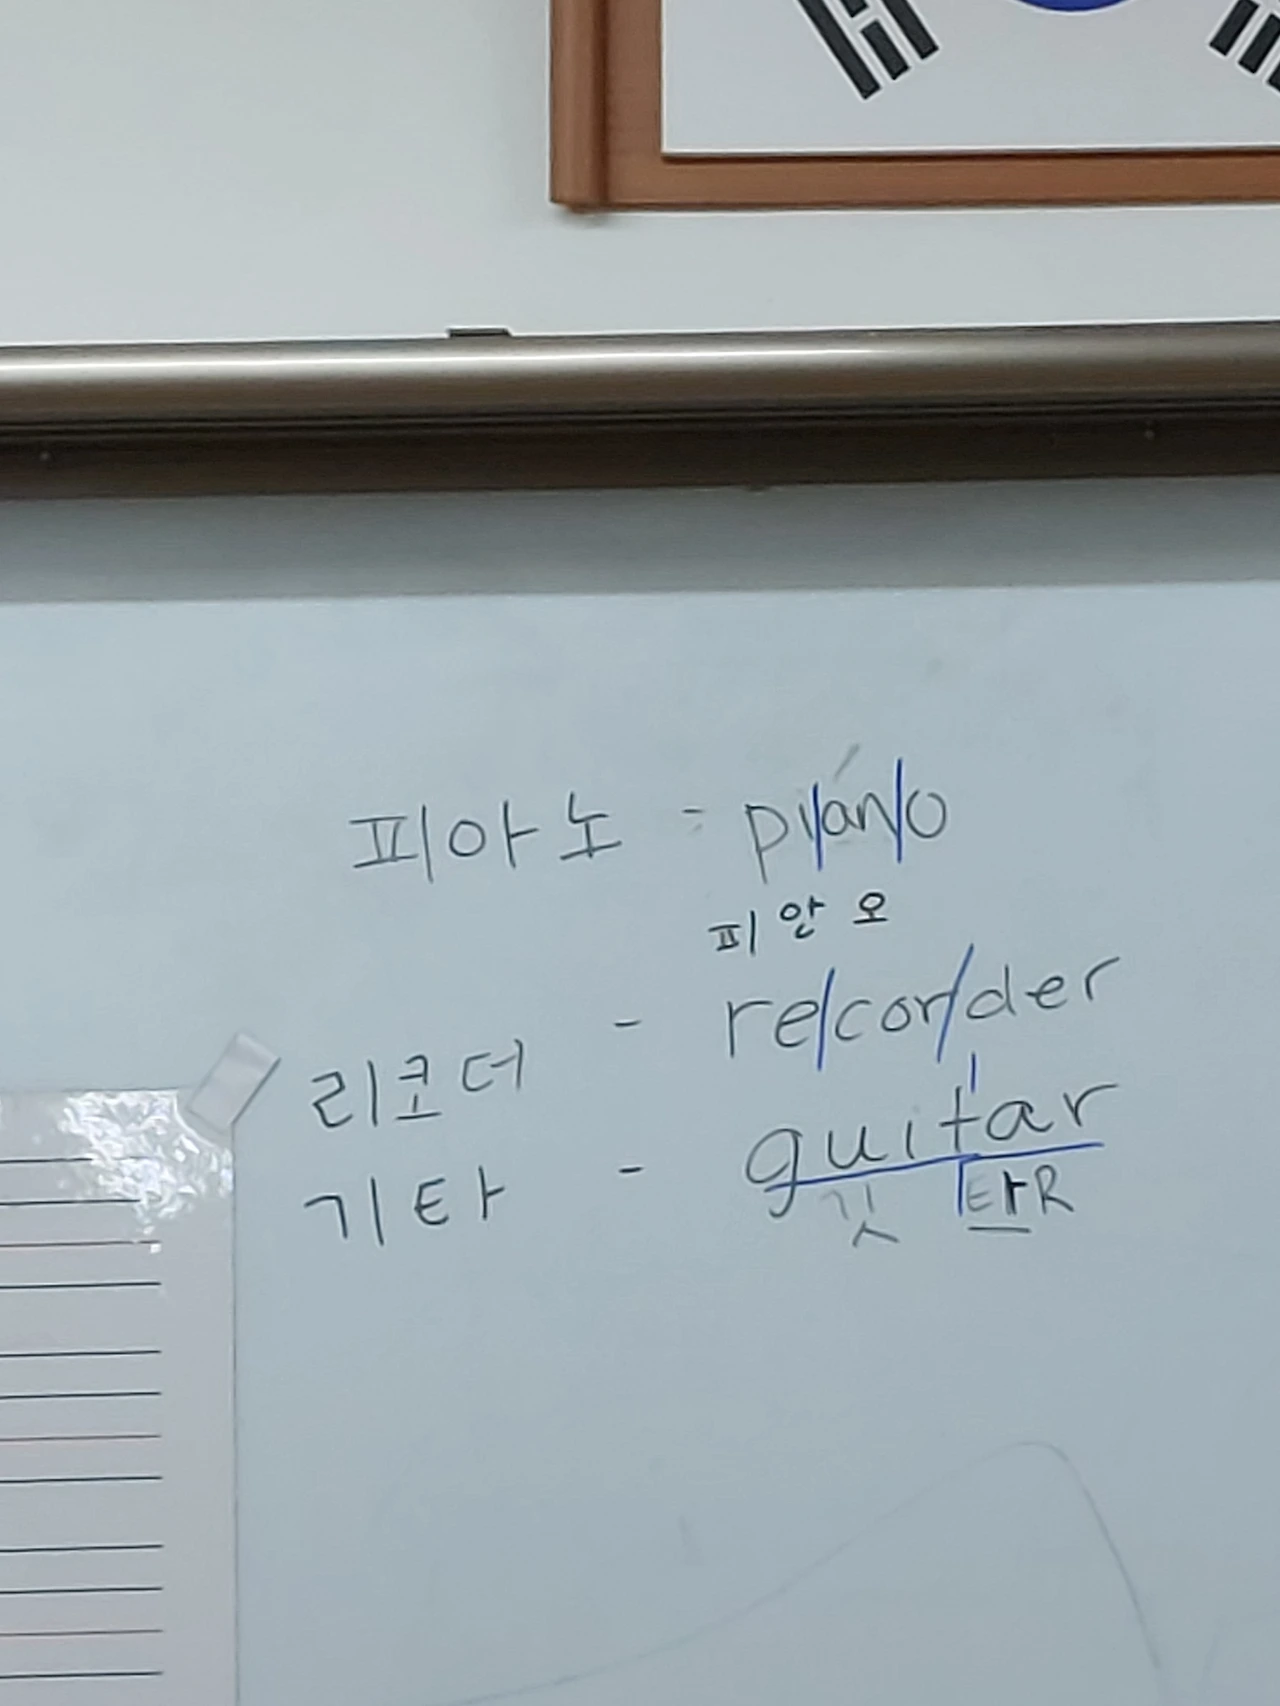 피아노 - pi/an/o
피 안 오
리코더 - re/cor/der
기타 - guitar
깃 타R